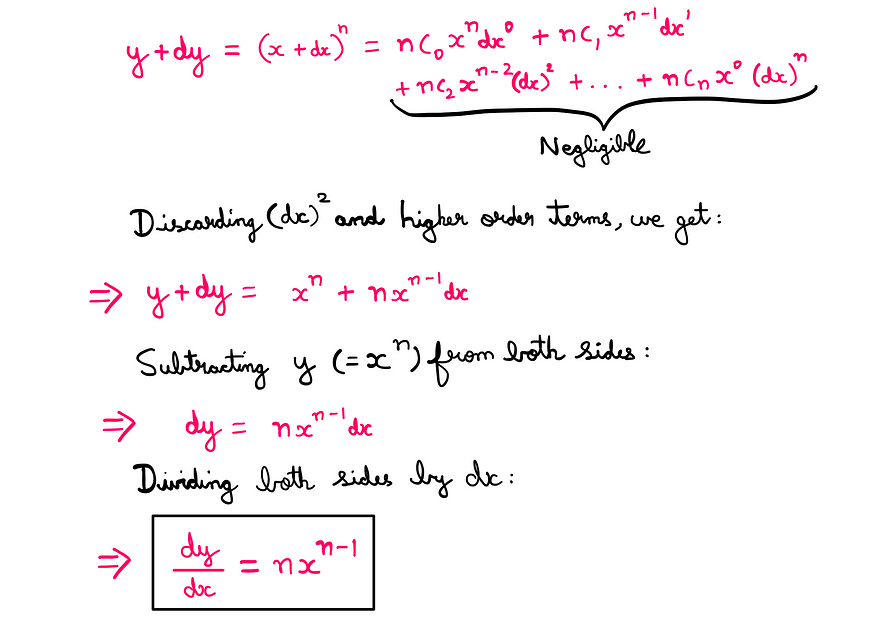 y+dy = (x+dx)ⁿ = nC₀xⁿdx⁰ + nC₁xⁿ⁻¹dx¹
+ nC₂xⁿ⁻²(dx)² + ... + nCₙx⁰(dx)ⁿ
Negligible
Discarding (dx)² and higher order terms, we get:
⇒ y+dy = xⁿ + nxⁿ⁻¹dx
Subtracting y (=xⁿ) from both sides:
⇒ dy = nxⁿ⁻¹dx
Dividing both sides by dx:
⇒ dy/dx = nxⁿ⁻¹